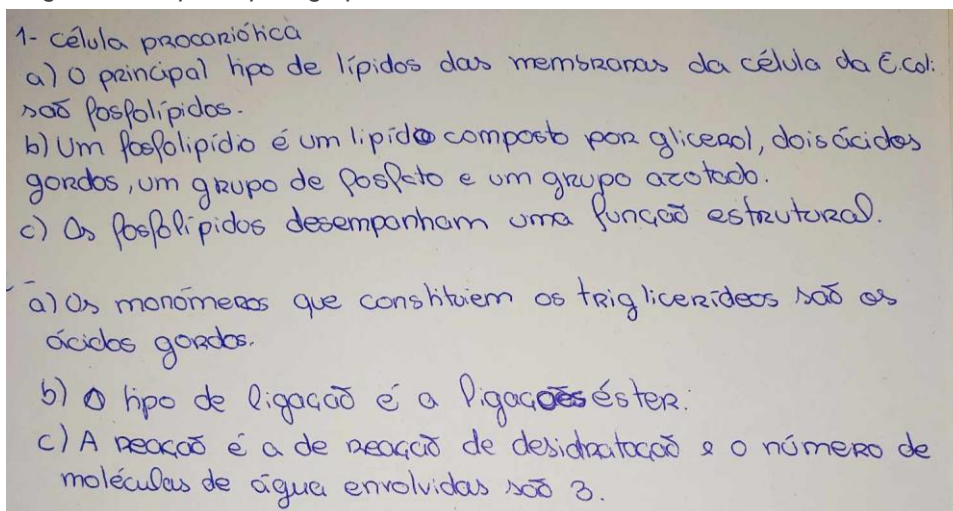 1- célula procariótica
a) O principal tipo de lípidos das membranas da célula da E.coli
saõ fosfolípidos.
b) Um fosfolipídio é um lipído composto por glicerol, dois ácidos
gordos, um grupo de fosfato e um grupo azotado.
c) Os fosfolípidos desempanham uma funçaõ estrutural.
a) Os monómeros que constituiem os triglicerídeos saõ os
ácidos gordos.
b) O tipo de ligaçaõ é a ligaçoes éster.
c) A reacçaõ é a de reacçaõ de desidrataçaõ e o número de
moléculas de água envolvidas saõ 3.